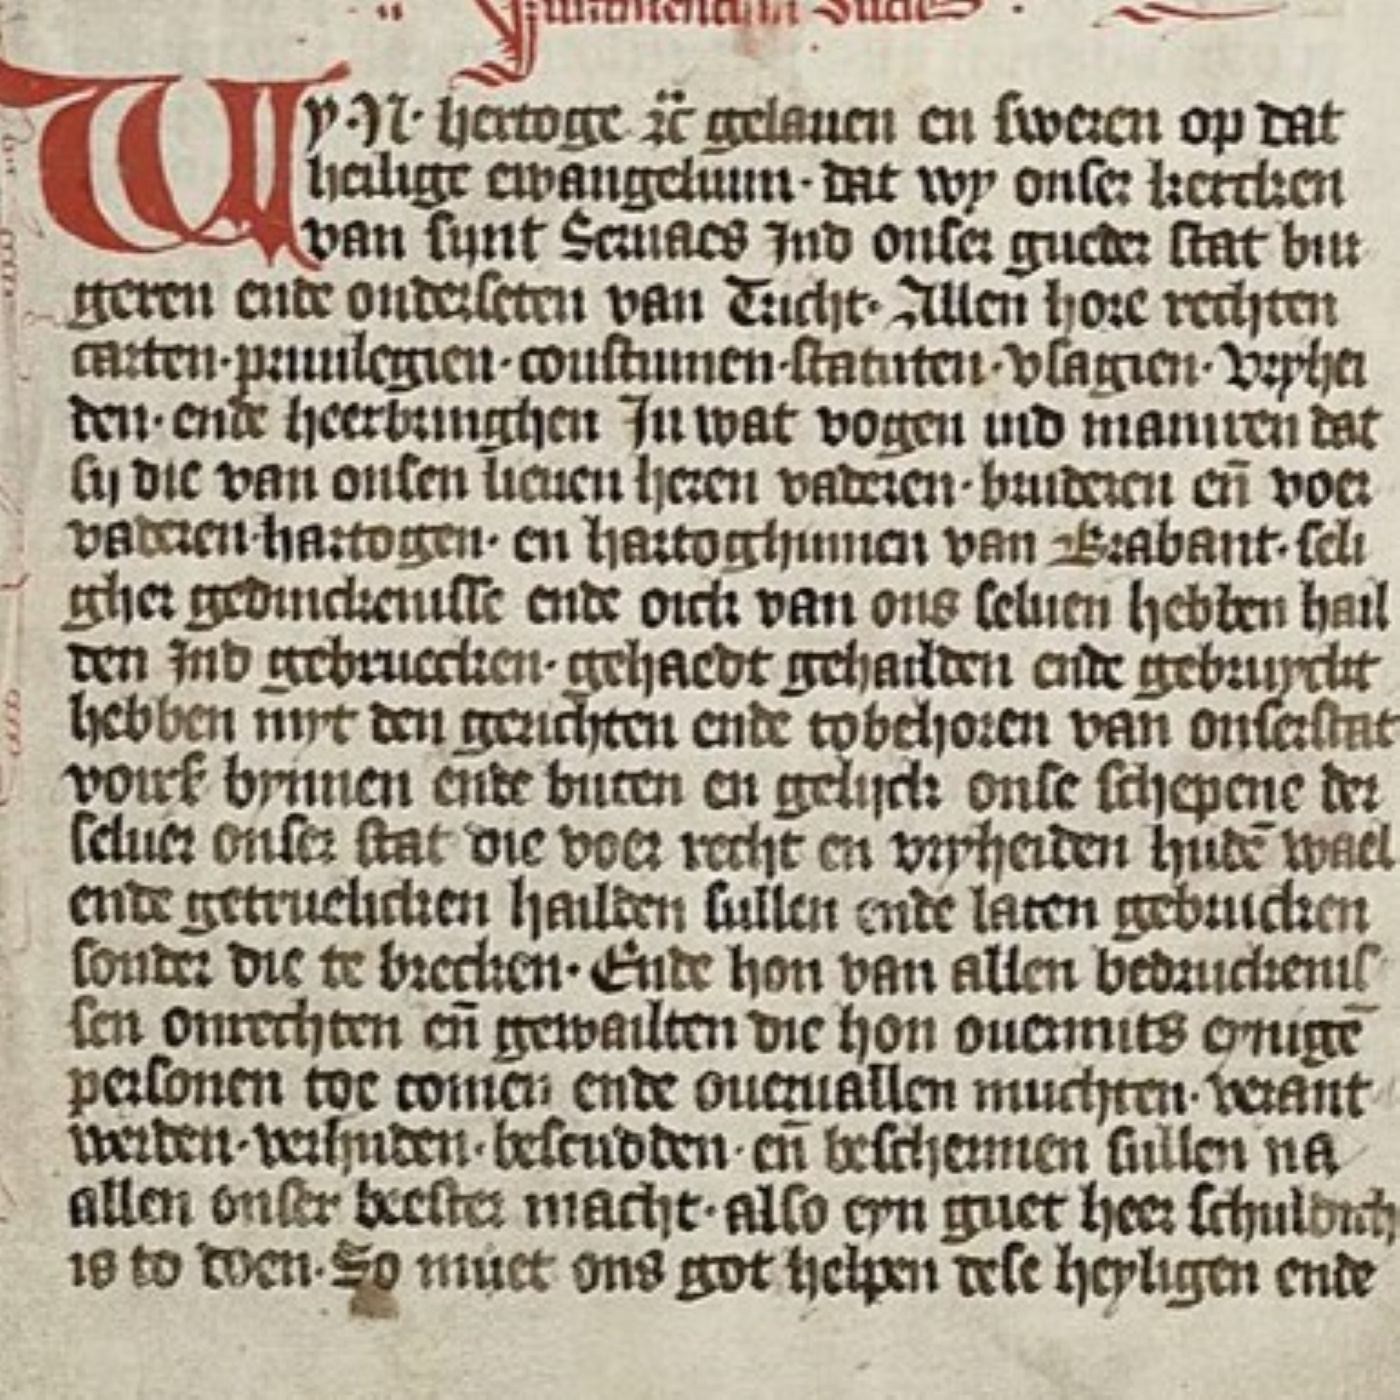 Juramentum ducis
Wy · N · hertoge ⁊c̈ gelauen en sweren op dat
heilige ewangelium · dat wy onser kercken
van sijnt Seruaes Jnd onser gueder stat bur
geren ende onderseten van Tricht · Allen hore rechten
carten · priuilegien · coustumen · statuten · vsagien · vryhei
den · ende heerbringhen Jn wat vogen uid maniren dat
sij die van onsen lieuen heren vaderen · bruderen en̄ voer
vaderen · hartogen · en hartoghinnen van Brabant · seli
gher gedinckenisse ende oick van ons seluen hebben hail
den Jnd gebruecken · gehaedt gehailden ende gebruyckt
hebben myt den gerichten ende tobehoren van onser stat
voirs bynnen ende buten en gelijck onse schepene der
seluer onser stat die voer recht en vryheiden hude᷄ wael
ende getruelicken hailden sullen ende laten gebruicken
sonder die te brecken · Ende hon van allen bedruckenis
sen onrechten en̄ gewailten die hon ouermits eynige᷄
personen toe comen ende oueruallen muchten · verant
werden · verhuden · bescudden · en̄ beschermen sullen na
allen onser beester macht · also eyn guet heer schuldich
is to doen · So muet ons got helpen dese heyligen ende